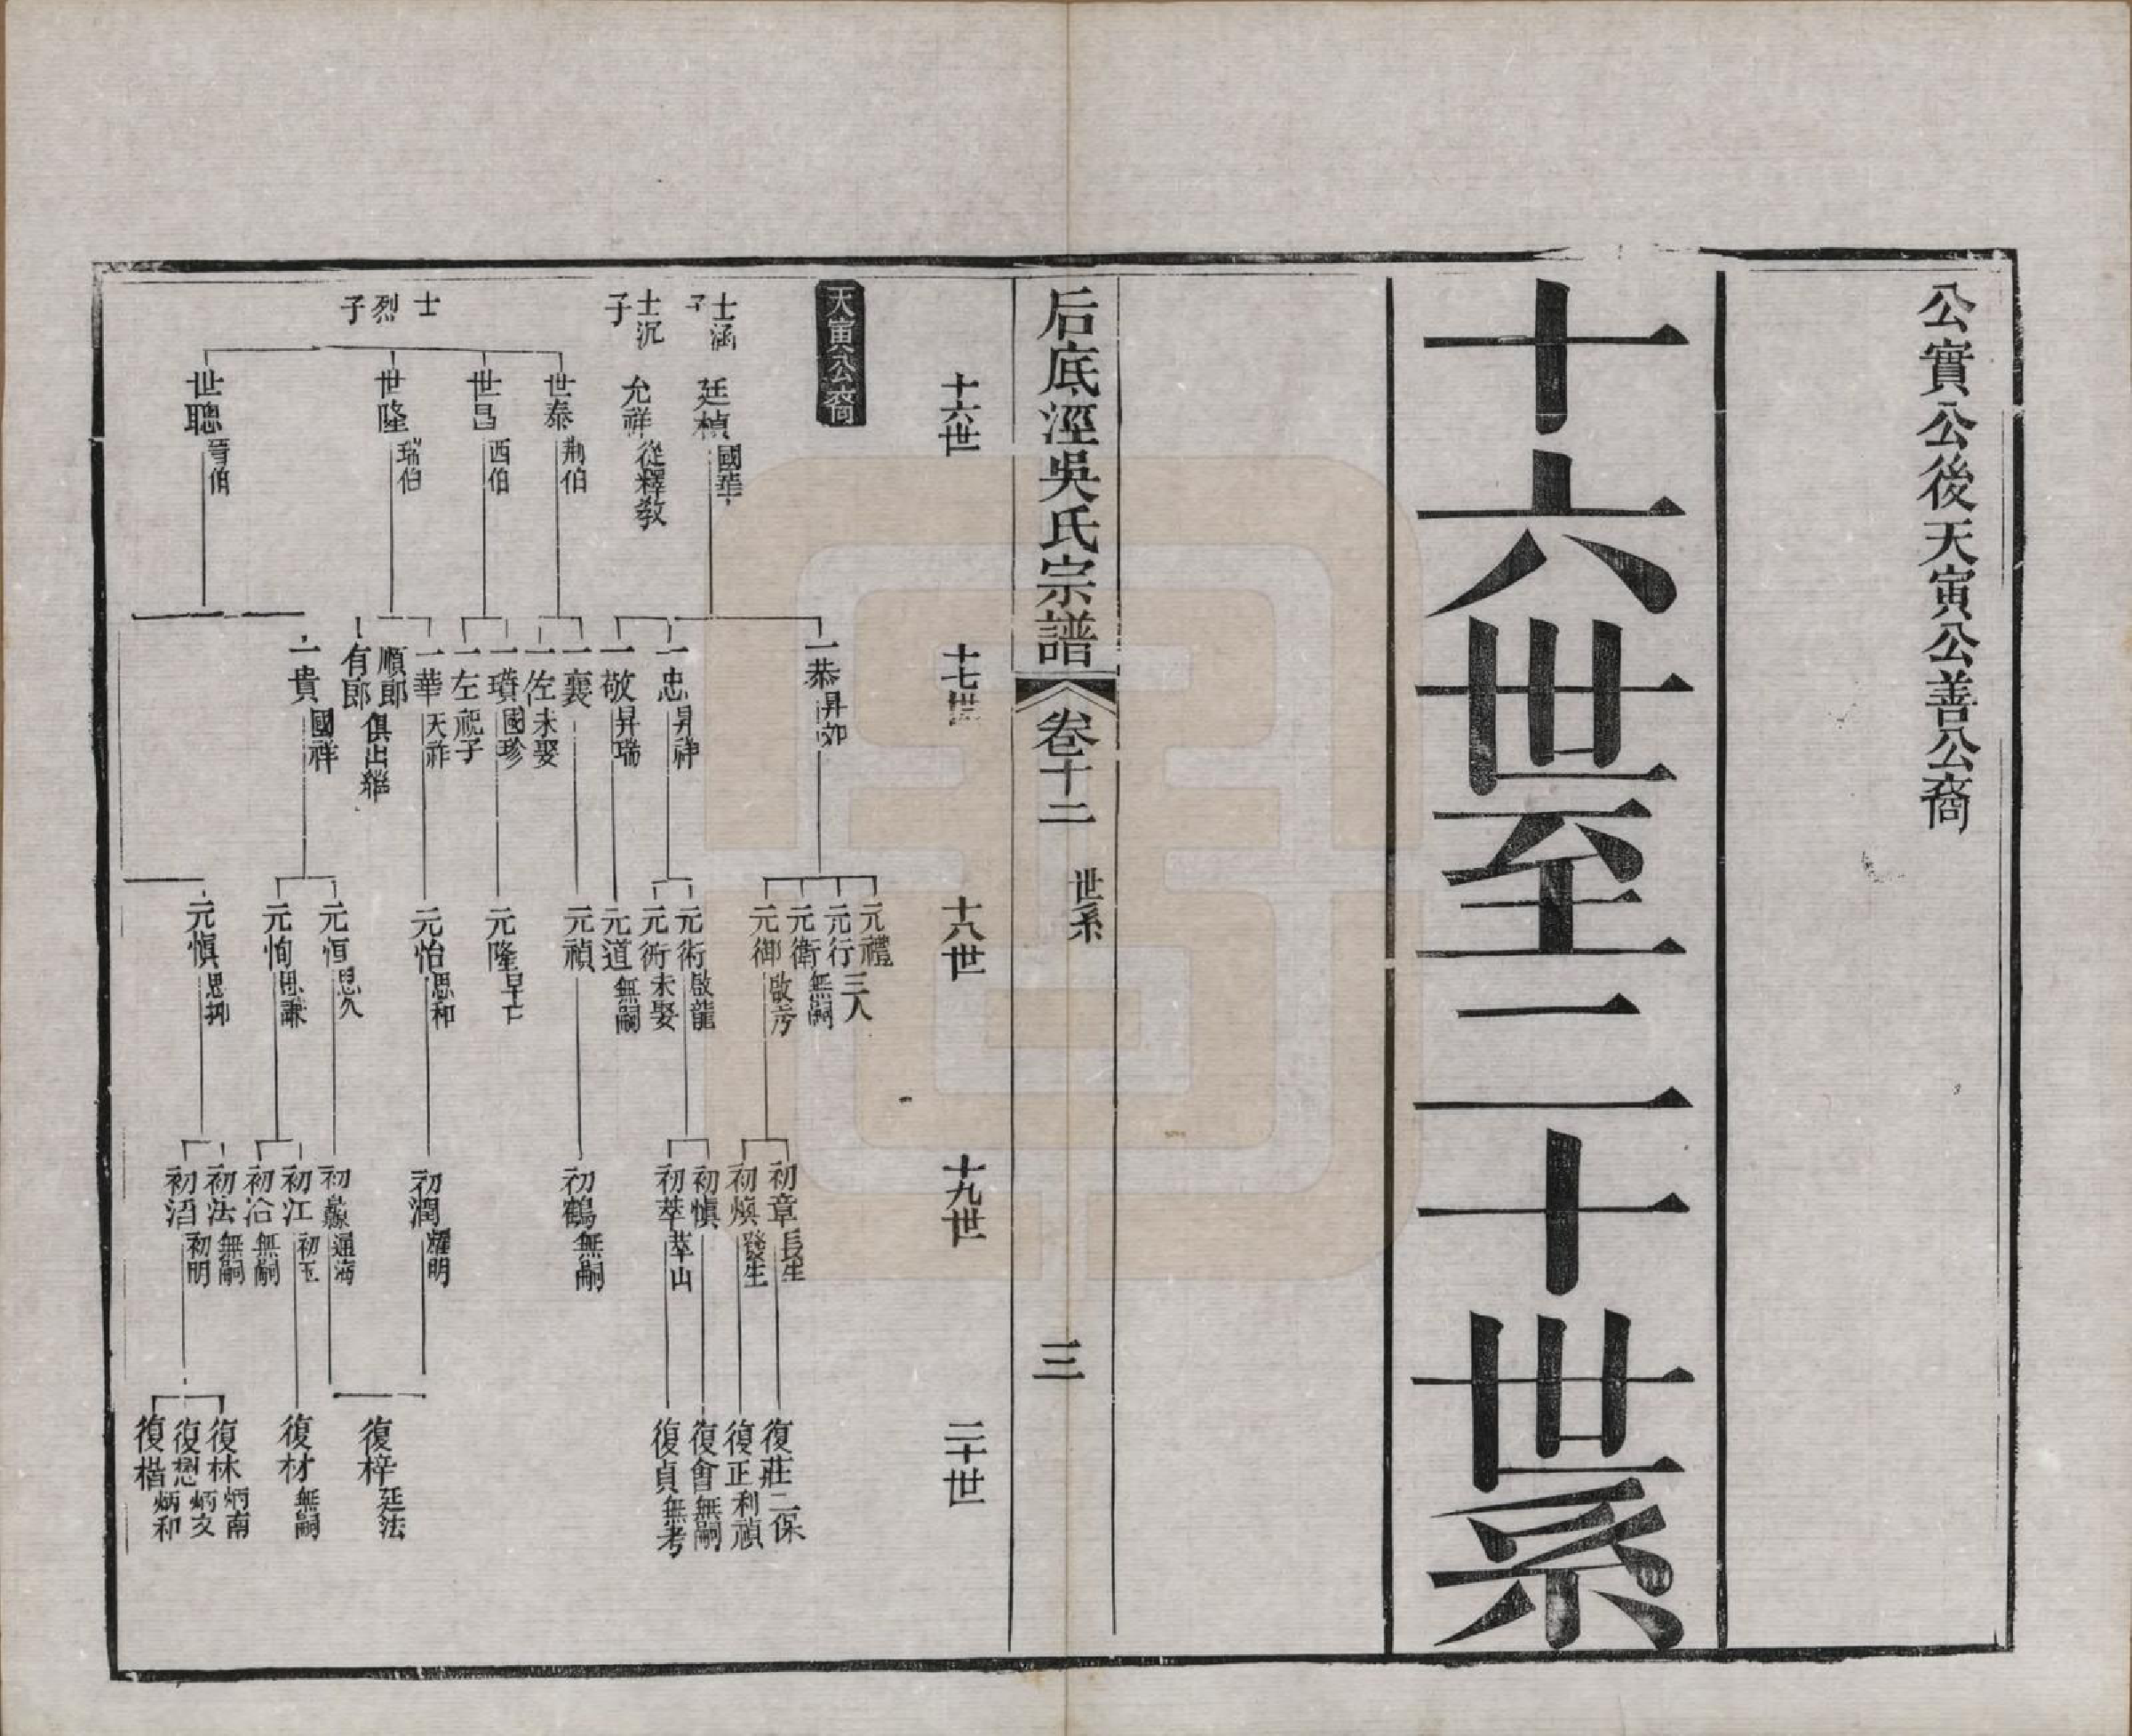 公實公後天寅公善公裔
十六世至二十世系
后底涇吳氏宗譜
卷十二
世系
三
十六世
十七世
十八世
十九世
二十世
天寅公裔
士涵子
廷楨 國華
士沉子
允祥 從釋教
士烈子
世泰 荆伯
世昌 西伯
世隆 瑞伯
世聰 晉伯
一恭
一忠 昇祥
一敬 昇瑞
一襄
一佐 未娶
一璸 國珍
一左 祝子
一華 天祚
順郎
有郎 俱出繼
一貴 國祥
元禮
元行 三人
元衛 無嗣
元御
元術 啟龍
元術 未娶
元道 無嗣
元禎
元隆 早亡
元怡 思和
元恒 思久
元恂 思謙
元慎 思抑
初章 長生
初煥 發生
初慎
初萃 萃山
初鶴 無嗣
初潤 耀明
初 通海
初江 初玉
初洽 無嗣
初法 無嗣
初滔 初明
復莊 二保
復正 利禎
復會 無嗣
復貞 無考
復梓 廷法
復材 無嗣
復林 炳南
復楒 炳文
復楷 炳和